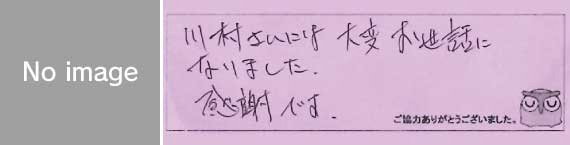 No image
川村さんには 大変 お世話に
なりました.
感謝です.
ご協力ありがとうございました。